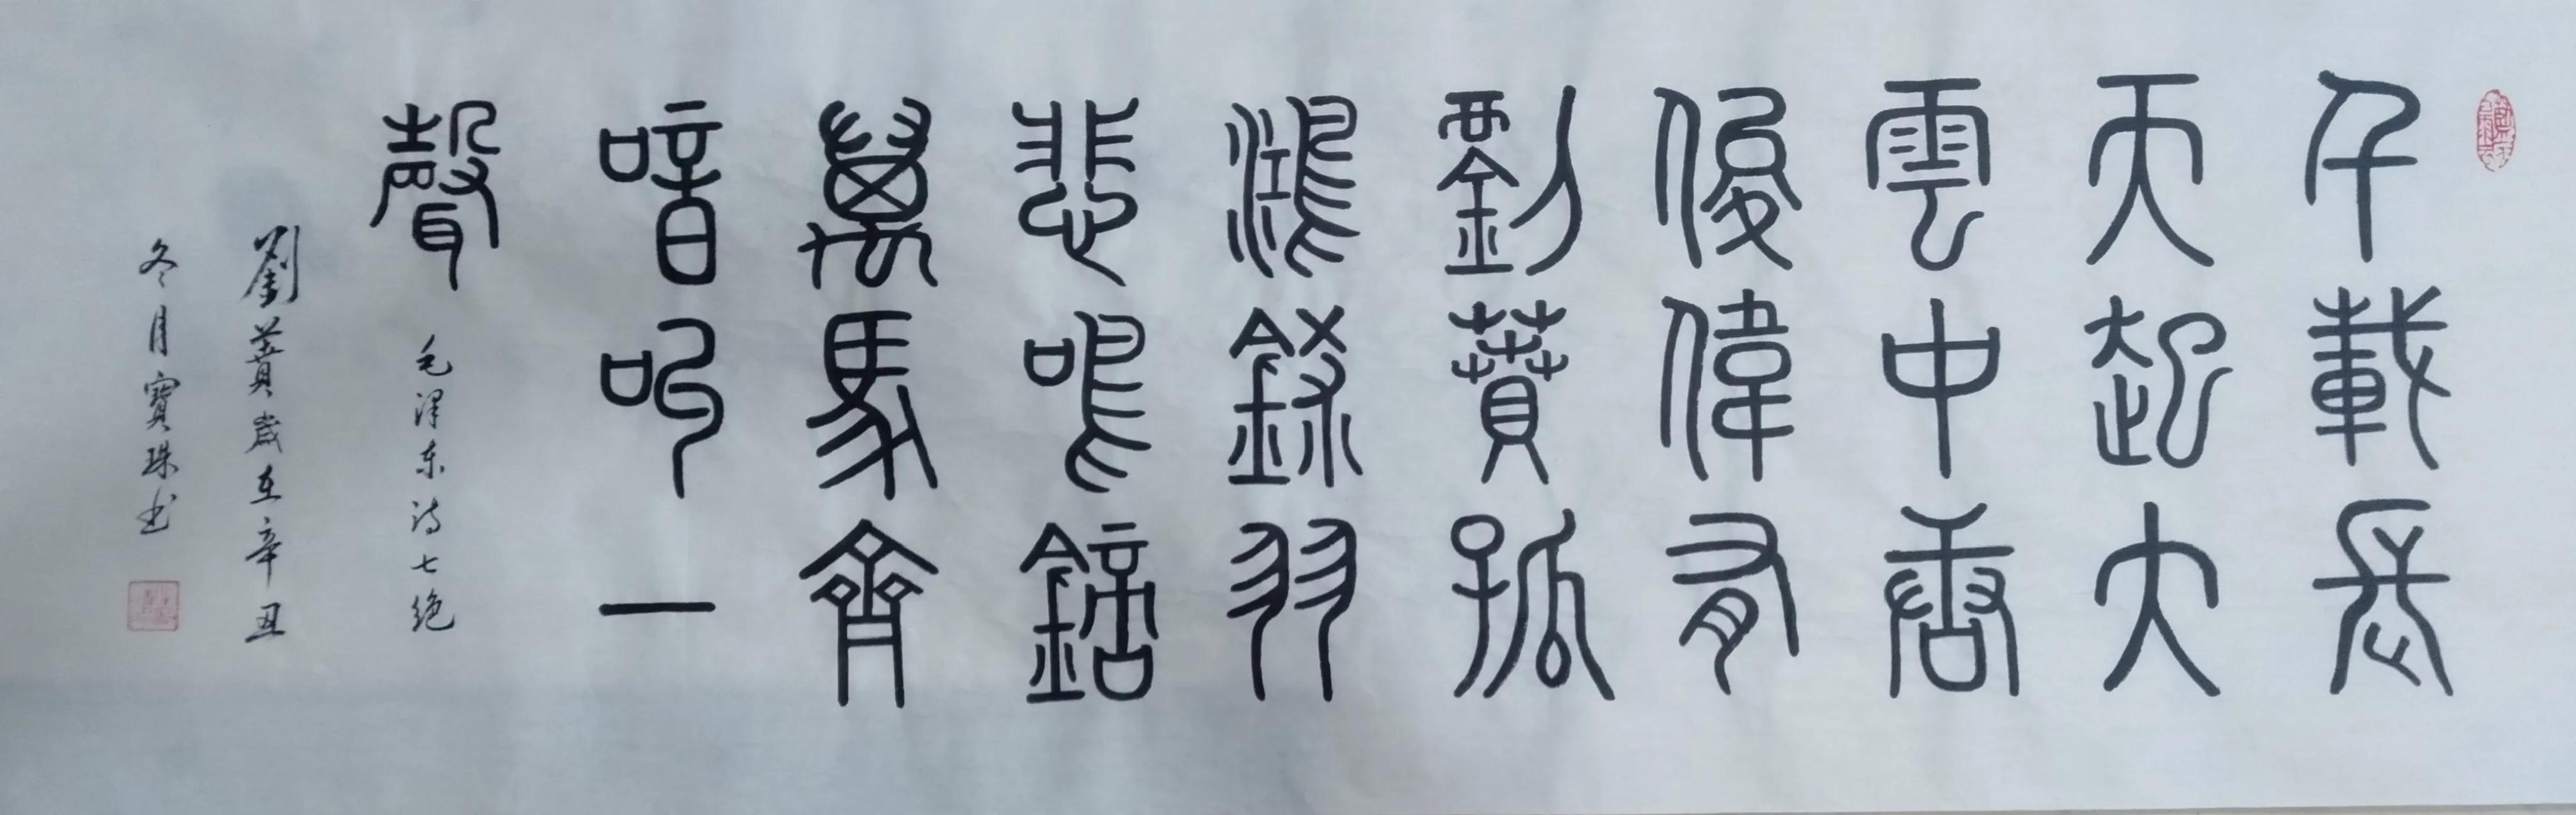 千載長
天起大
雲中唐
俊偉有
劉蕡孤
鴻鎩羽
悲鳴鏑
萬馬齊
喑叫一
聲
毛泽东诗七绝
劉蕡歲在辛丑
冬月寶珠书